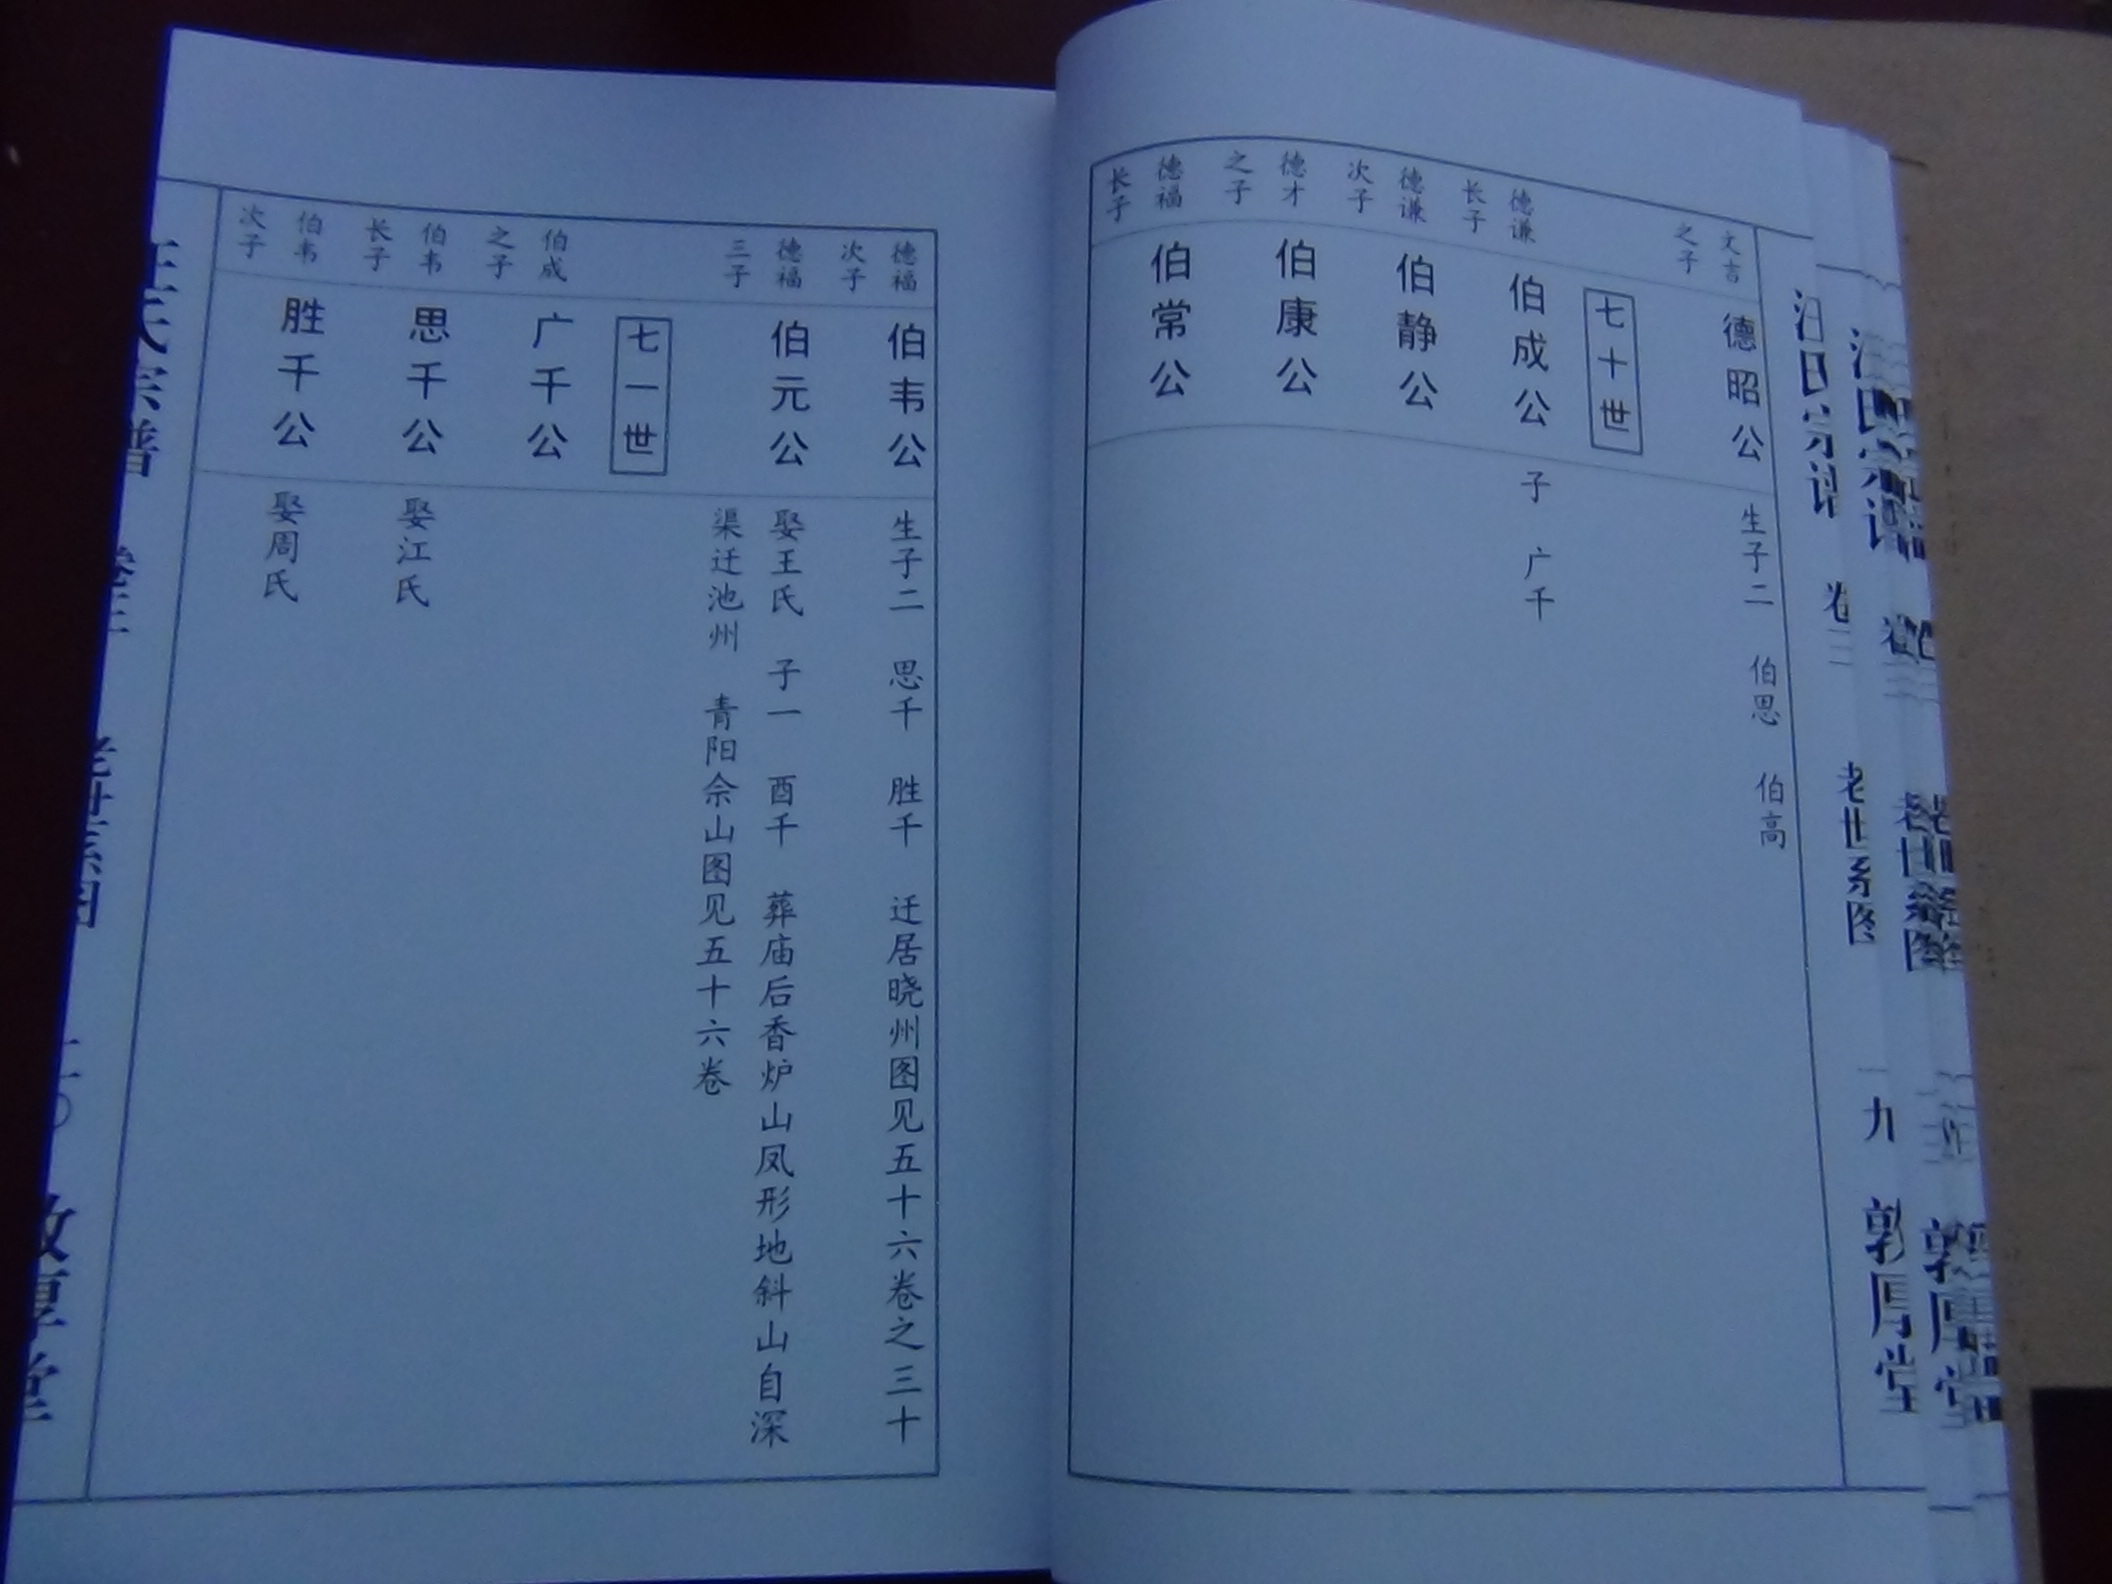 汪氏宗谱 卷三 老世系图 九 敦厚堂
文吉
之子
德昭公
生子二 伯思 伯高
七十世
德谦
长子
伯成公
子 广千
德谦
次子
伯静公
德才
之子
伯康公
德福
长子
伯常公
德福
次子
伯韦公
生子二 思千 胜千 迁居晓州图见五十六卷之三十
德福
三子
伯元公
娶王氏 子一 酉千 葬庙后香炉山凤形地斜山自深
渠迁池州 青阳佘山图见五十六卷
七一世
伯成
之子
广千公
伯韦
长子
思千公
娶江氏
伯韦
次子
胜千公
娶周氏
汪氏宗谱 卷三 老世系图 一〇 敦厚堂